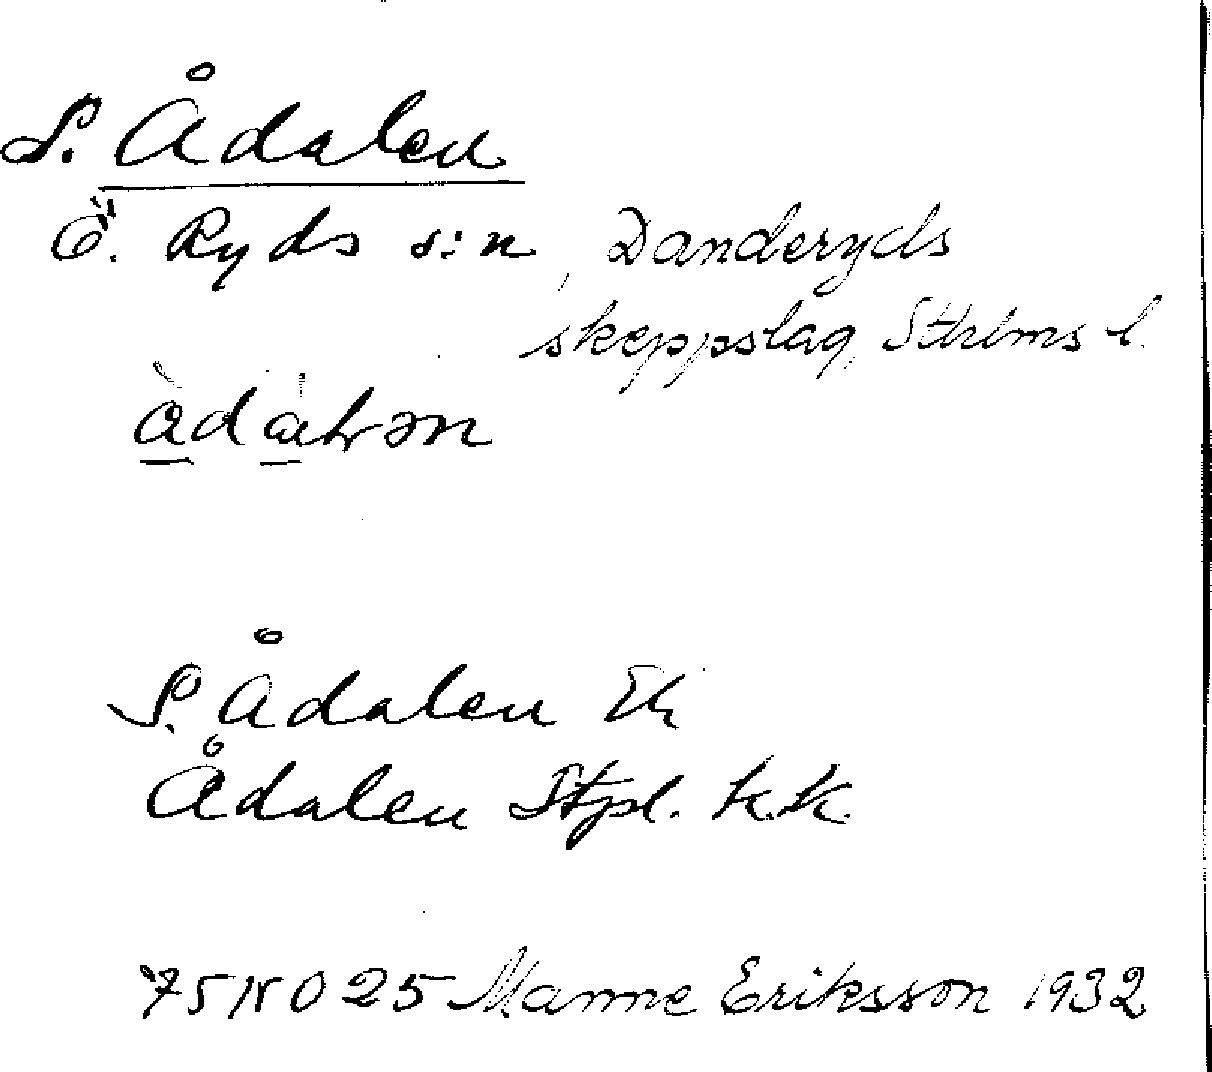 S. Ådalen
Ö. Ryds s:n, Danderyds
skeppslag, Sthlms l.
S. Ådalen Ek
Ådalen Stpl. k.k.
75 NO 25 Manne Eriksson 1932